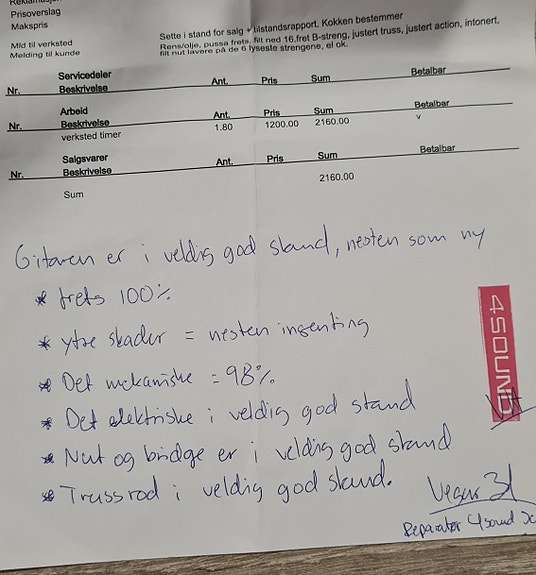 Reklamasjon
Prisoverslag
Makspris
Mld til verksted Sette i stand for salg + tilstandsrapport. Kokken bestemmer
Melding til kunde Rens/olje, pussa frets, filt ned 16.fret B-streng, justert truss, justert action, intonert,
filt nut lavere på de 6 lyseste strengene, el ok.
Servicedeler
Nr. Beskrivelse Ant. Pris Sum Betalbar
Arbeid
Nr. Beskrivelse Ant. Pris Sum Betalbar
verksted timer 1.80 1200.00 2160.00 v
Salgsvarer
Nr. Beskrivelse Ant. Pris Sum Betalbar
Sum 2160.00
Gitaren er i veldig god stand, nesten som ny
* frets 100%
* ytre skader = nesten ingenting
* Det mekaniske = 98%
* Det elektriske i veldig god stand
* Nut og bridge er i veldig god stand
* Trussrod i veldig god stand.
4SOUND
Reparatør 4sound